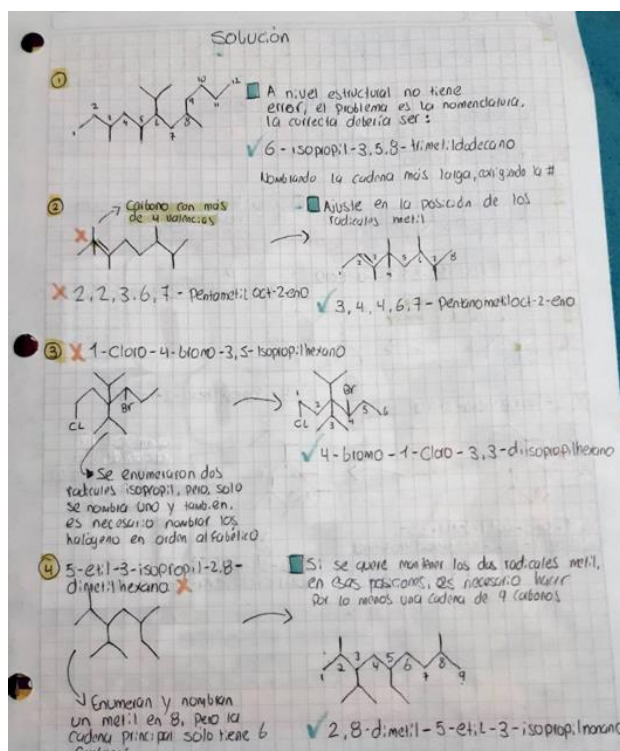 Solución
①
10 12
9 11
2
1 3 4 5 6 7 8
A nivel estructural no tiene
error, el problema es la nomenclatura,
la correcta debería ser:
✓ 6-isopropil-3,5,8-trimetildodecano
Nombrando la cadena más larga, corrigiendo la #
②
Carbono con más
de 4 valencias
X
Ajuste en la posición de los
radicales metil
1 2 3 4 5 6 7 8
X 2,2,3,6,7-Pentametil oct-2-eno
✓ 3,4,4,6,7-Pentanometiloct-2-eno
③ X 1-Cloro-4-bromo-3,5-Isopropilhexano
CL Br
1 2 3 4 5 6
CL Br
✓ 4-bromo-1-Cloro-3,3-diisopropilhexano
Se enumeraron dos
radicales isopropil, pero, solo
se nombra uno y también,
es necesario nombrar los
halógeno en orden alfabético.
④ 5-etil-3-isopropil-2,8-
dimetilhexano X
Si se quiere mantener los dos radicales metil,
en esas posiciones, es necesario hacer
por lo menos una cadena de 9 carbonos
1 2 3 4 5 6 7 8 9
Enumeran y nombran
un metil en 8, pero la
cadena principal solo tiene 6
✓ 2,8-dimetil-5-etil-3-isopropilnonano